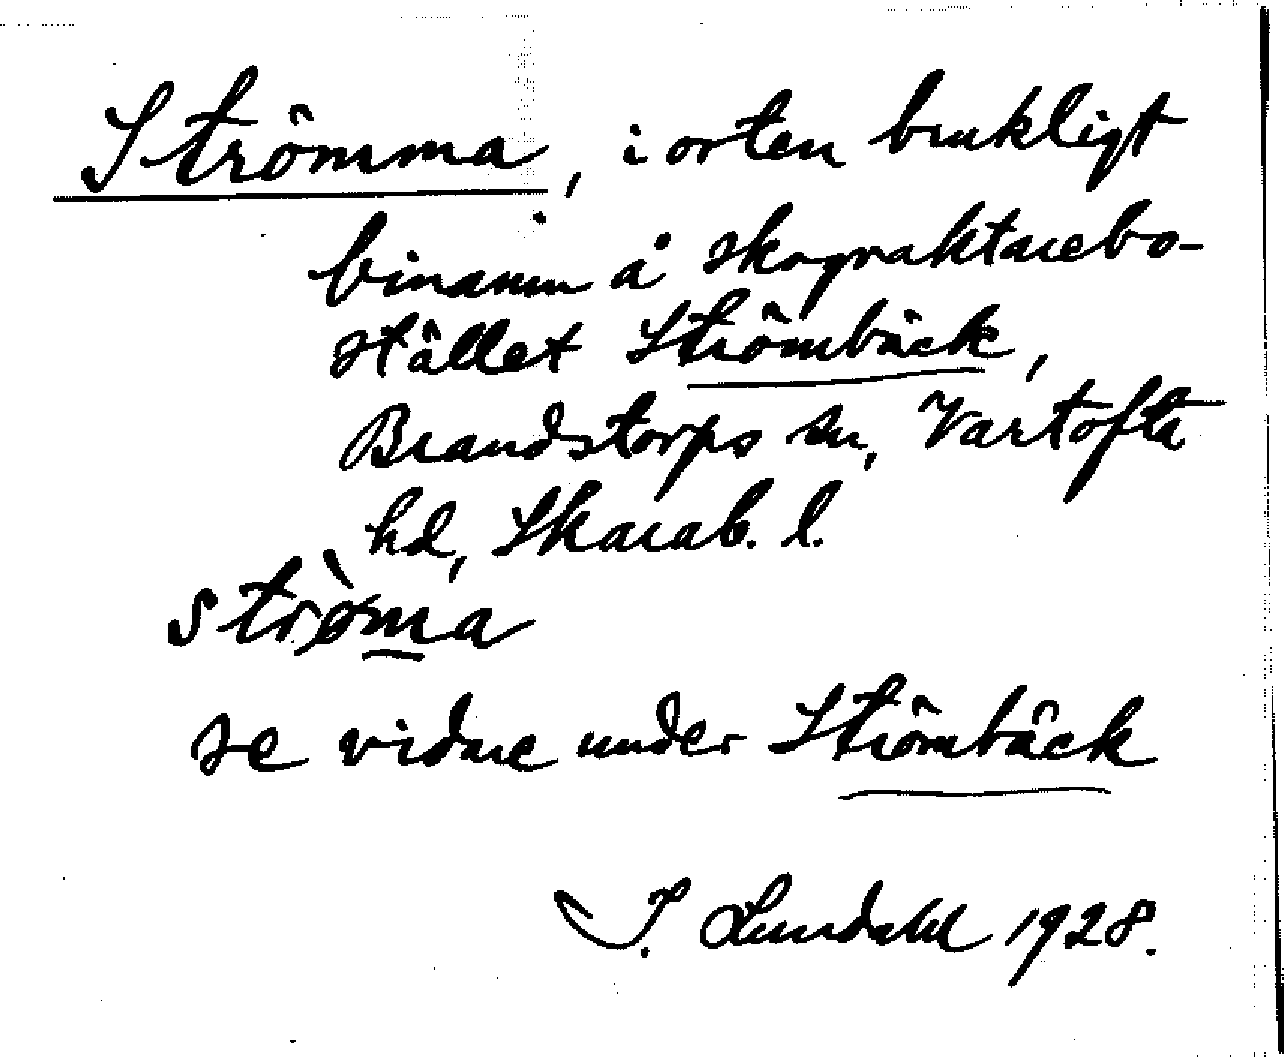 Strömma, i orten brukligt
binamn å skogvaktarebo-
stället Strömbäck,
Brandstorps sn, Vartofta
hd, Skarab. l.
strø̀ma
se vidare under Strömbäck
I. Lundahl 1928.